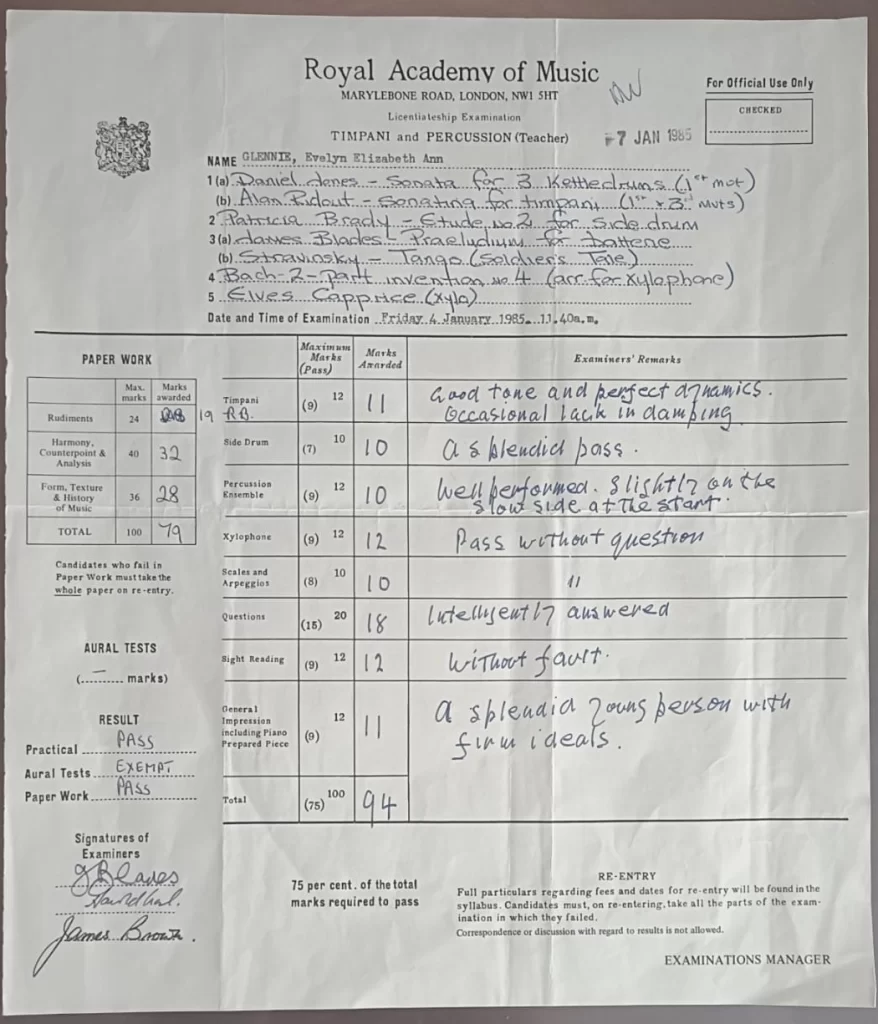 Royal Academy of Music
MARYLEBONE ROAD, LONDON, NW1 5HT
Licentiateship Examination
TIMPANI and PERCUSSION (Teacher)
7 JAN 1985
For Official Use Only
CHECKED
NAME GLENNIE, Evelyn Elizabeth Ann
1 (a) Daniel Jones - Sonata for 3 Kettledrums (1st mvt)
(b) Alan Ridout - Sonatina for timpani (1st & 3rd mvts)
2 Patricia Brady - Etude no.2 for side drum
3 (a) James Blades - Praeludium for Batterie
(b) Stravinsky - Tango (Soldier's Tale)
4 Bach - 2-Part invention no.4 (arr. for xylophone)
5 Elves Capprice (xylo)
Date and Time of Examination Friday 4 January 1985. 11.40a.m.
PAPER WORK
Max. marks Marks awarded
Rudiments 24 19
Harmony, Counterpoint & Analysis 40 32
Form, Texture & History of Music 36 28
TOTAL 100 79
Candidates who fail in
Paper Work must take the
whole paper on re-entry.
AURAL TESTS
—
(.......... marks)
RESULT
Practical PASS
Aural Tests EXEMPT
Paper Work PASS
Signatures of
Examiners
James Brown.
Maximum Marks (Pass) Marks Awarded Examiners' Remarks
Timpani R.B. (9) 12 11 Good tone and perfect dynamics.
Occasional lack in damping
Side Drum (7) 10 10 A splendid pass.
Percussion Ensemble (9) 12 10 Well performed. Slightly on the
slow side at the start.
Xylophone (9) 12 12 Pass without question
Scales and Arpeggios (8) 10 10 "
Questions (15) 20 18 Intelligently answered
Sight Reading (9) 12 12 Without fault.
General Impression including Piano Prepared Piece (9) 12 11 A splendid young person with
firm ideals.
Total (75) 100 94
75 per cent. of the total
marks required to pass
RE-ENTRY
Full particulars regarding fees and dates for re-entry will be found in the
syllabus. Candidates must, on re-entering, take all the parts of the exam-
ination in which they failed.
Correspondence or discussion with regard to results is not allowed.
EXAMINATIONS MANAGER